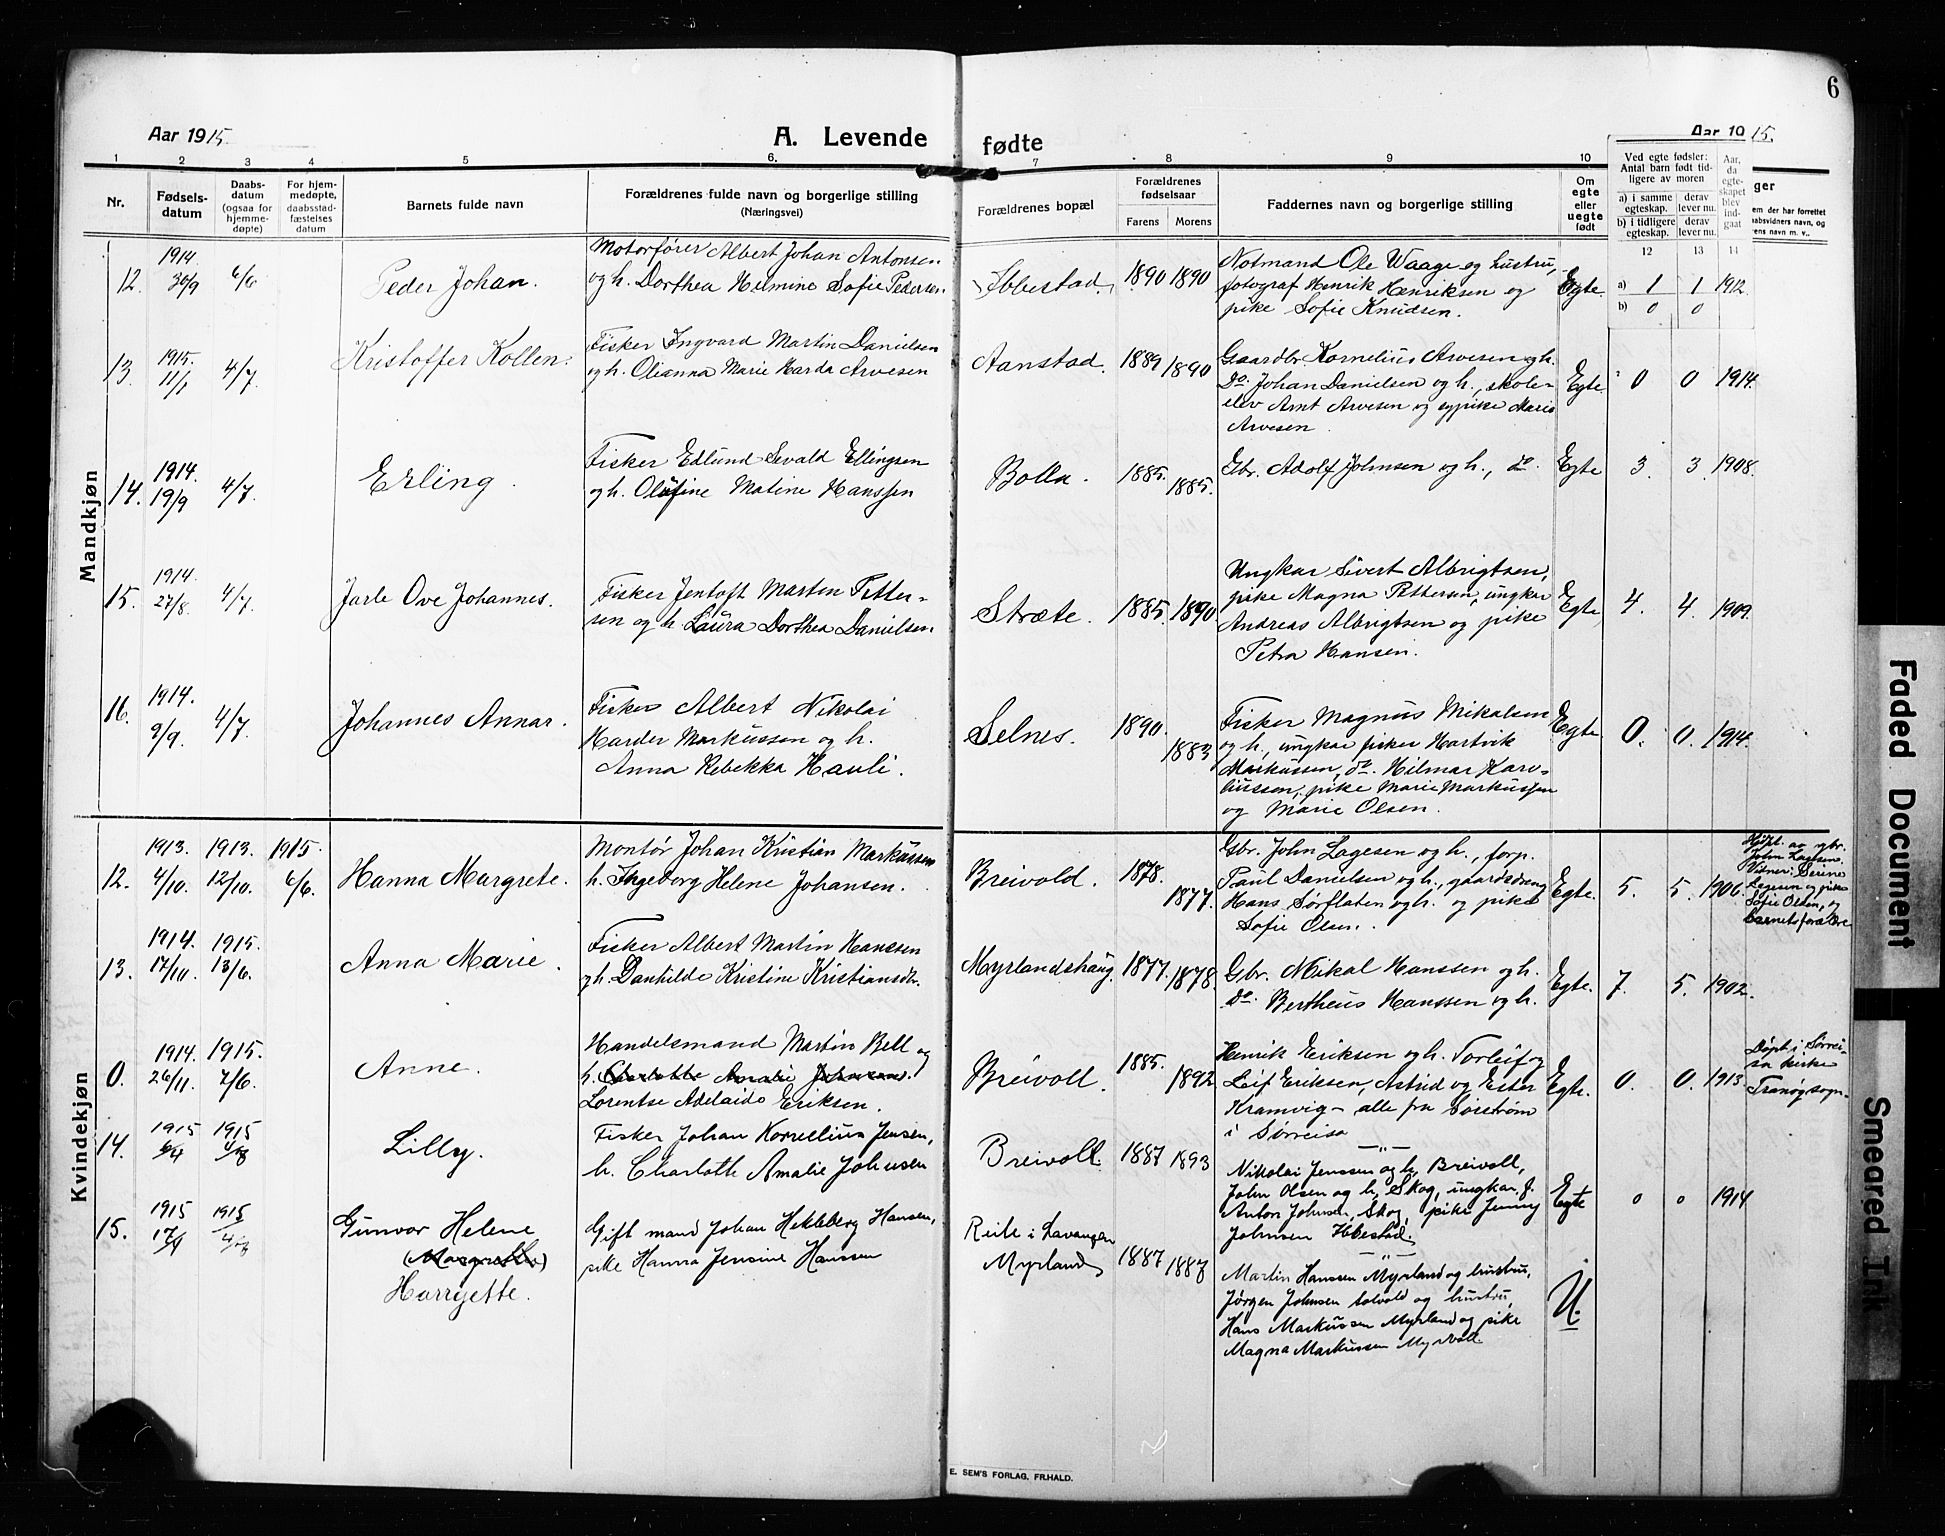 6
Aar 1915.
A. Levende fødte
Aar 1915.
1 2 3 4 5 6. 7 8 9 10
Nr.
Fødsels-
datum
Daabs-
datum
(ogsaa for
hjemme-
døpte)
For hjem-
medøpte,
daabsstad-
fæstelses
datum
Barnets fulde navn
Forældrenes fulde navn og borgerlige stilling
(Næringsvei)
Forældrenes bopæl
Forældrenes
fødselsaar
Farens Morens
Faddernes navn og borgerlige stilling
Om
egte
eller
uegte
født
Ved egte fødsler:
Antal barn født tid-
ligere av moren
a) i samme
egteskap.
derav
lever nu.
b) i tidligere
egteskap.
derav
lever nu.
Aar,
da
egte-
skapet
blev
ind-
gaat
12 13 14
Mandkjøn
12.
1914.
30/9
6/6
Peder Johan.
Motorfører Albert Johan Antonsen
og h. Dorthea Helmine Sofie Pedersen
Ibbestad.
1890 1890
Notmand Ole Waage og hustru,
fotograf Henrik Henriksen og
pike Sofie Knudsen.
Egte.
a) 1 1 1912.
b) 0 0
13.
1915.
11/1
4/7.
Kristoffer Kollen.
Fisker Ingvard Martin Danielsen
og h. Olianna Marie Harda Arvesen
Aanstad.
1889 1890
Gaardbr. Kornelius Arvesen og h.
Do. Johan Danielsen og h., skole-
elev Arnt Arvesen og sypike Marie
Arvesen.
Egte.
0 0 1914.
14.
1914.
19/9
4/7.
Erling.
Fisker Edlund Sevald Ellingsen
og h. Olufine Matine Hanssen
Bolla.
1885. 1885.
Gbr. Adolf Johnsen og h., do.
Egte
3 3. 1908.
15.
1914.
27/8.
4/7.
Jarle Ove Johannes.
Fisker Jentoft Marten Petter-
sen og h. Laura Dorthea Danielsen
Stræte.
1885. 1890.
Ungkar Sivert Albrigtsen,
pike Magna Pettersen, ungkar
Andreas Albrigtsen og pike
Petra Hansen.
Egte
4. 4. 1909.
16.
1914.
9/9.
4/7.
Johannes Annar.
Fisker Albert Nikolai
Harder Markussen og h.
Anna Rebekka Hauli.
Selnes.
1890. 1883
Fisker Magnus Mikalsen
og h., ungkar fisker Hartvik
Markussen, do. Hilmar Karo-
liussen, pike Marie Markussen
og Marie Olsen.
Egte
0. 0. 1914.
Kvindekjøn
12.
1913.
4/10.
1913.
12/10.
1915.
6/6.
Hanna Margrete.
Montør Johan Kristian Markussen
h. Ingeborg Helene Johansen.
Breivold.
1878. 1877.
Gbr. John Lagesen og h., forp.
Paul Danielsen og h., gaardsdreng
Hans Sørflaten og h. og pike
Sofie Olsen.
Egte.
5. 5. 1906.
Hjdpt. av gbr.
John Lagesen.
Vitner: Serine
Lagesen og pike
Sofie Olsen, og
barnets forældre
13.
1914.
17/10.
1915.
13/6.
Anna Marie.
Fisker Albert Martin Hanssen
og h. Danhilde Kristine Kristiansdtr.
Myrlandshaug.
1877. 1878.
Gbr. Mikal Hanssen og h.
Do. Bertheus Hanssen og h.
Egte.
7. 5. 1902.
0.
1914.
26/11.
1915.
7/6.
Anne.
Handelsmand Martin Bell og
h. Charlotte Amalie Johnsen.
Lorentse Adelaide Eriksen.
Breivoll.
1885. 1892
Henrik Eriksen og h. Torleif og
Leif Eriksen, Astrid og Ester
Kramvig – alle fra Sørstrøm
i Sørreisa
Egte.
0. 0. 1913.
Døpt i Sørrei-
sa kirke
Tranøy sogn.
14.
1915
1915
Lilly.
Fisker Johan Kornelius Jensen,
h. Charlotte Amalie Johnsen
Breivoll
1887 1893
Nikolai Jenssen og h. Breivoll,
John Olsen og h. Skog, ungkar f.
Anton Johnsen, Skog, pike Jenny
Johnsen Ibbestad.
Egte
0 0 1914
15.
1915
1915
Gunvor Helene
(Margrethe)
Harryette.
Gift mand Johan Hekleberg Hansen,
pike Hanna Jensine Hanssen
Reite i Lavangen
Myrland
1887 1887
Martin Hanssen Myrland og hustru,
Jørgen Johnsen Solvold og hustru,
Hans Markussen Myrland og pike
Magna Markussen Myrvoll.
U.
E. SEM'S FORLAG, FR.HALD.
Faded Document
Smeared Ink